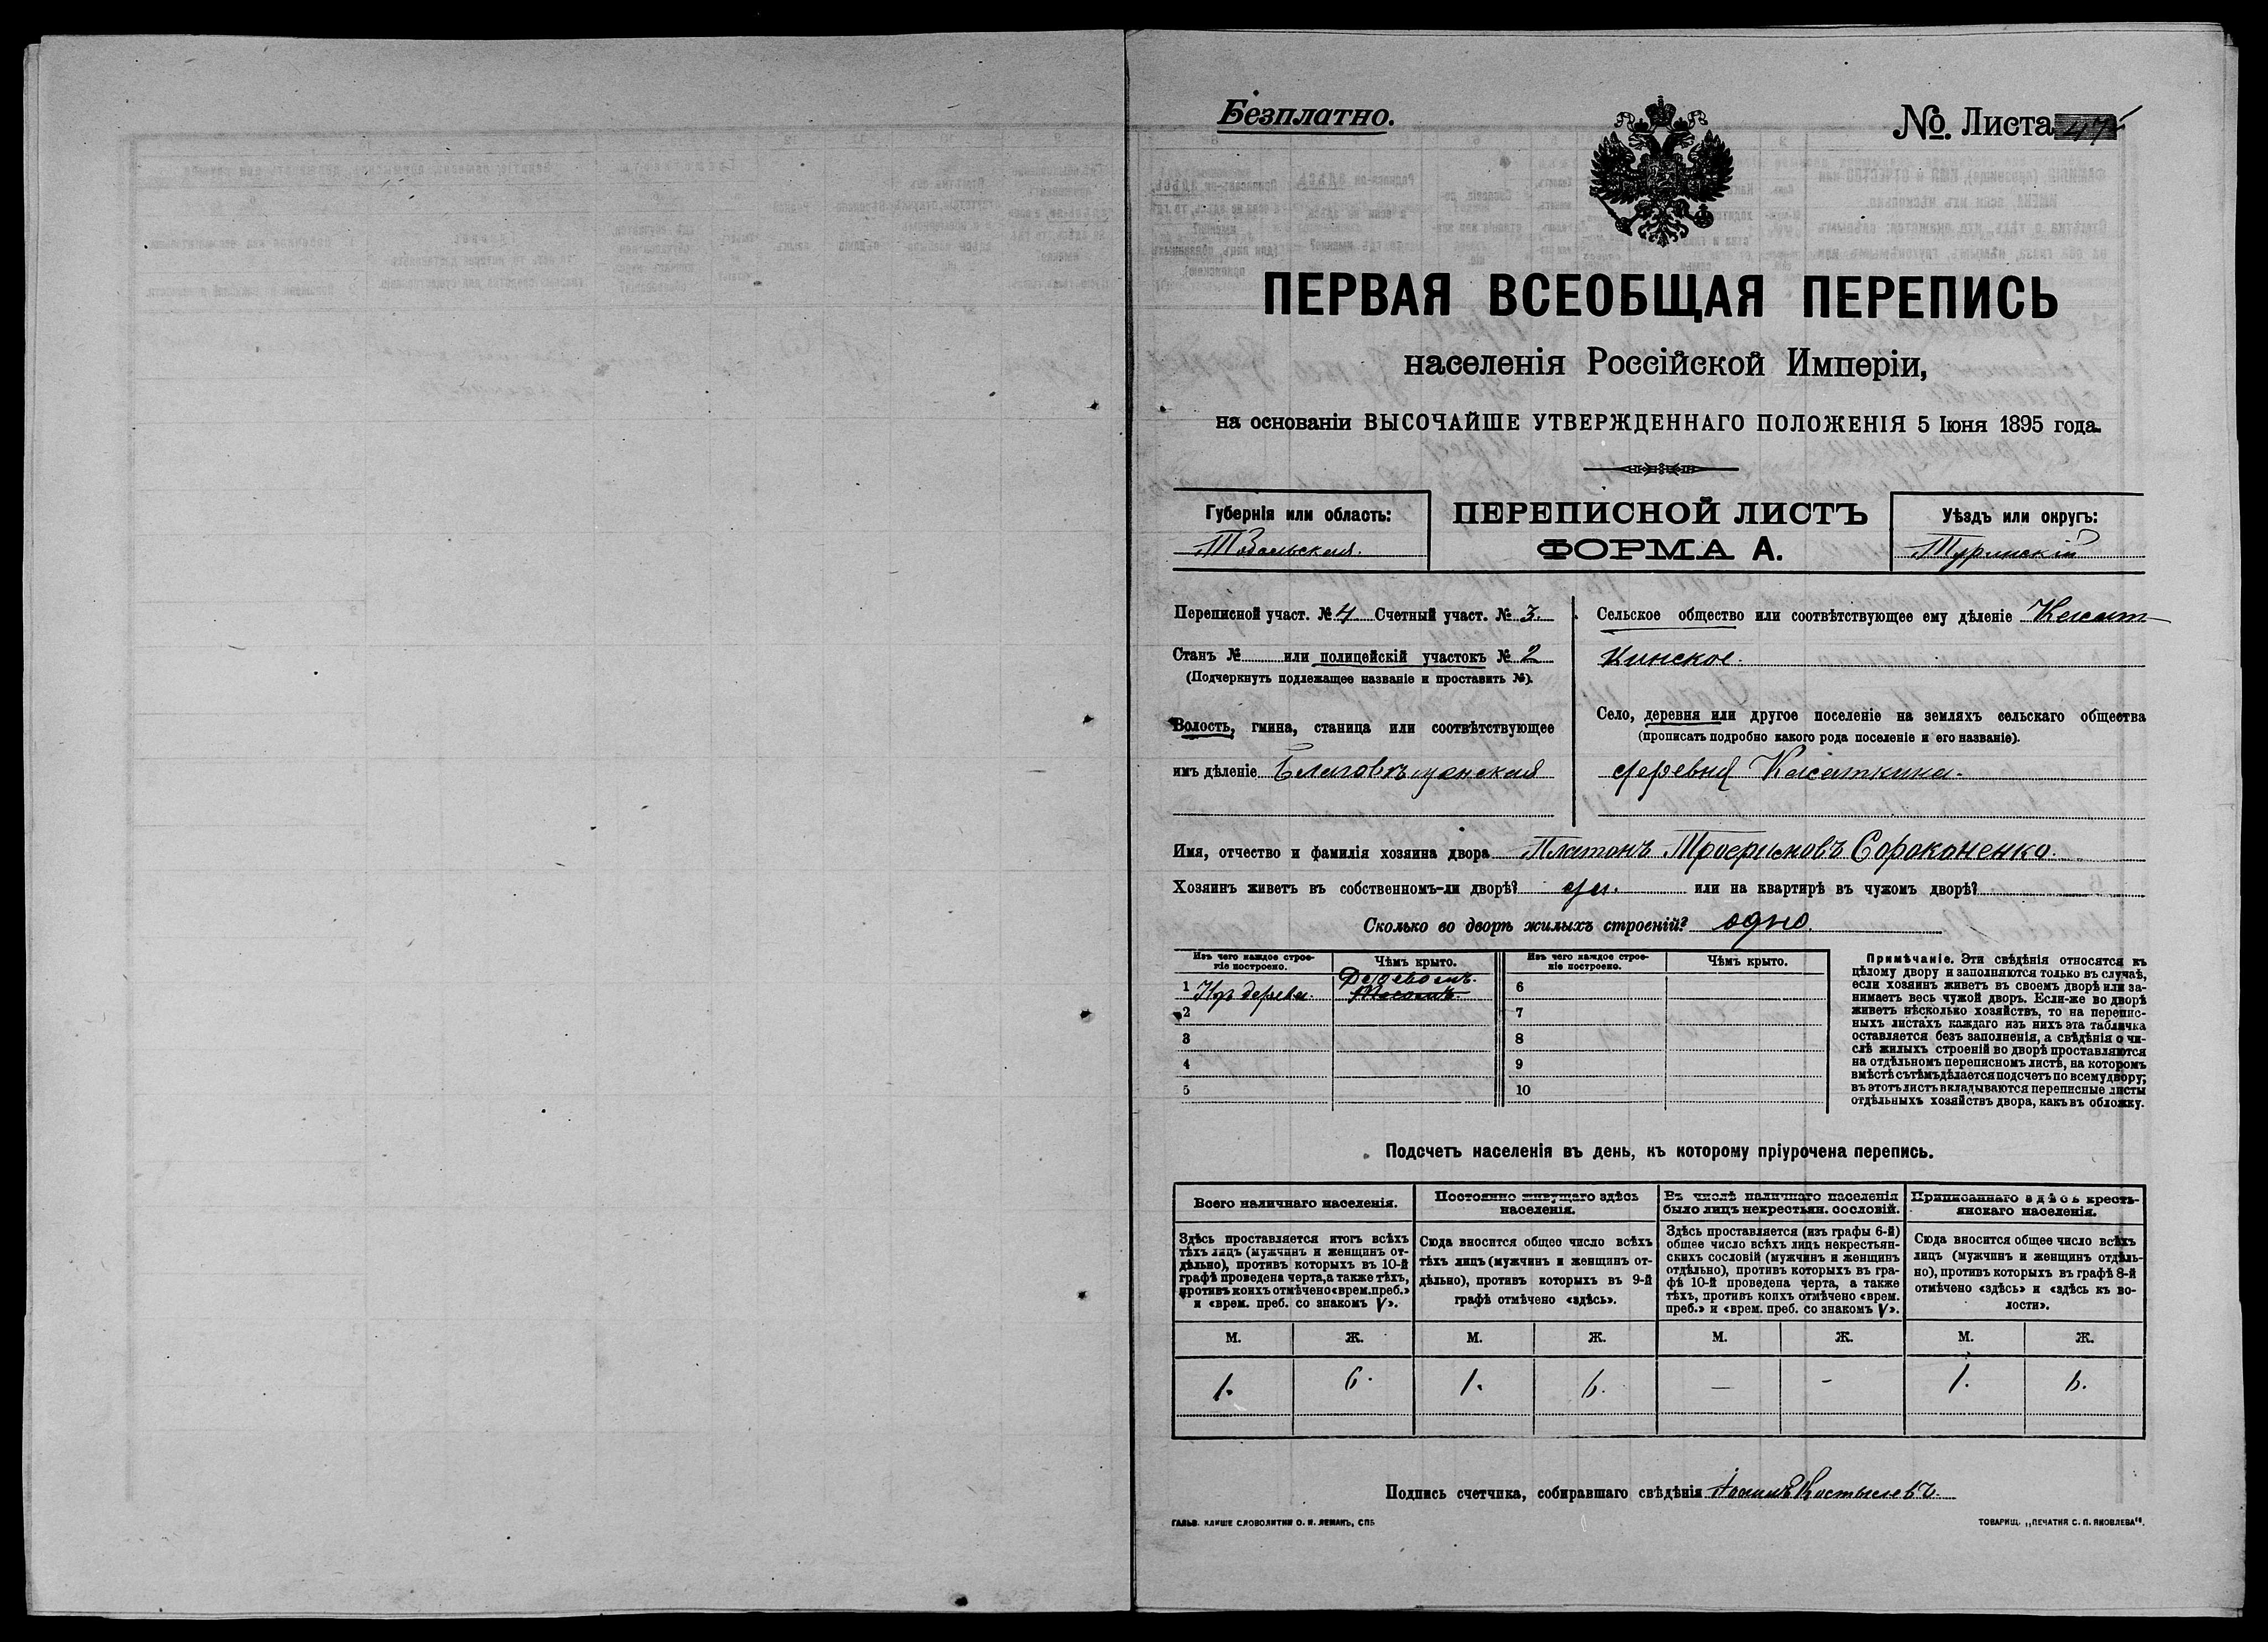 Безплатно.
№. Листа 47
ПЕРВАЯ ВСЕОБЩАЯ ПЕРЕПИСЬ
населенія Россійской Имперіи,
на основаніи ВЫСОЧАЙШЕ УТВЕРЖДЕННАГО ПОЛОЖЕНІЯ 5 Іюня 1895 года.
Губернія или область:
Тобольская.
ПЕРЕПИСНОЙ ЛИСТЪ
ФОРМА А.
Уѣздъ или округъ:
Туринскій
Переписной участ. № 4 Счетный участ. № 3.
Станъ № или полицейскій участокъ № 2
(Подчеркнуть подлежащее названіе и проставить №).
Волость, гмина, станица или соотвѣтствующее
имъ дѣленіе Благовѣщенская
Сельское общество или соотвѣтствующее ему дѣленіе Касат-
кинское.
Село, деревня или другое поселеніе на земляхъ сельскаго общества
(прописать подробно какого рода поселеніе и его названіе).
деревня Касаткина.
Имя, отчество и фамилія хозяина двора Платонъ Трофимовъ Сороконенко.
Хозяинъ живетъ въ собственномъ-ли дворѣ? да. или на квартирѣ въ чужомъ дворѣ?
Сколько во дворѣ жилыхъ строеній? одно.
Изъ чего каждое строе-
ніе построено.
Чѣмъ крыто.
Изъ чего каждое строе-
ніе построено.
Чѣмъ крыто.
Деревомъ.
1 Изъ дерева. Тесомъ. 6
2 7
3 8
4 9
5 10
Примѣчаніе. Эти свѣдѣнія относятся къ
цѣлому двору и заполняются только въ случаѣ,
если хозяинъ живетъ въ своемъ дворѣ или за-
нимаетъ весь чужой дворъ. Если-же во дворѣ
живетъ нѣсколько хозяйствъ, то на перепис-
ныхъ листахъ каждаго изъ нихъ эта табличка
оставляется безъ заполненія, а свѣдѣнія о чи-
слѣ жилыхъ строеній во дворѣ проставляются
на отдѣльномъ переписномъ листѣ, на которомъ
вмѣстѣ съ тѣмъ дѣлается подсчетъ по всему двору;
въ этотъ листъ вкладываются переписные листы
отдѣльныхъ хозяйствъ двора, какъ въ обложку.
Подсчетъ населенія въ день, къ которому пріурочена перепись.
Всего наличнаго населенія.
Здѣсь проставляется итогъ всѣхъ
тѣхъ лицъ (мужчинъ и женщинъ от-
дѣльно), противъ которыхъ въ 10-й
графѣ проведена черта, а также тѣхъ,
противъ коихъ отмѣчено «врем. преб.»
и «врем. преб. со знакомъ V».
Постоянно живущаго здѣсь
населенія.
Сюда вносится общее число всѣхъ
тѣхъ лицъ (мужчинъ и женщинъ от-
дѣльно), противъ которыхъ въ 9-й
графѣ отмѣчено «здѣсь».
Въ числѣ наличнаго населенія
было лицъ некрестьян. сословій.
Здѣсь проставляется (изъ графы 6-й)
общее число всѣхъ лицъ некрестьян-
скихъ сословій (мужчинъ и женщинъ
отдѣльно), противъ которыхъ въ гра-
фѣ 10-й проведена черта, а также
тѣхъ, противъ коихъ отмѣчено «врем.
преб.» и «врем. преб. со знакомъ V».
Приписаннаго здѣсь кресть-
янскаго населенія.
Сюда вносится общее число всѣхъ
лицъ (мужчинъ и женщинъ отдѣль-
но), противъ которыхъ въ графѣ 8-й
отмѣчено «здѣсь» и «здѣсь къ во-
лости».
М. Ж. М. Ж. М. Ж. М. Ж.
1. 6. 1. 6. — - 1. 6.
Подпись счетчика, собиравшаго свѣдѣнія Костылевъ.
ГАЛЬВ. КЛИШЕ СЛОВОЛИТНИ О. И. ЛЕМАНЪ, СПБ
ТОВАРИЩ. „ПЕЧАТНЯ С. П. ЯКОВЛЕВА“.